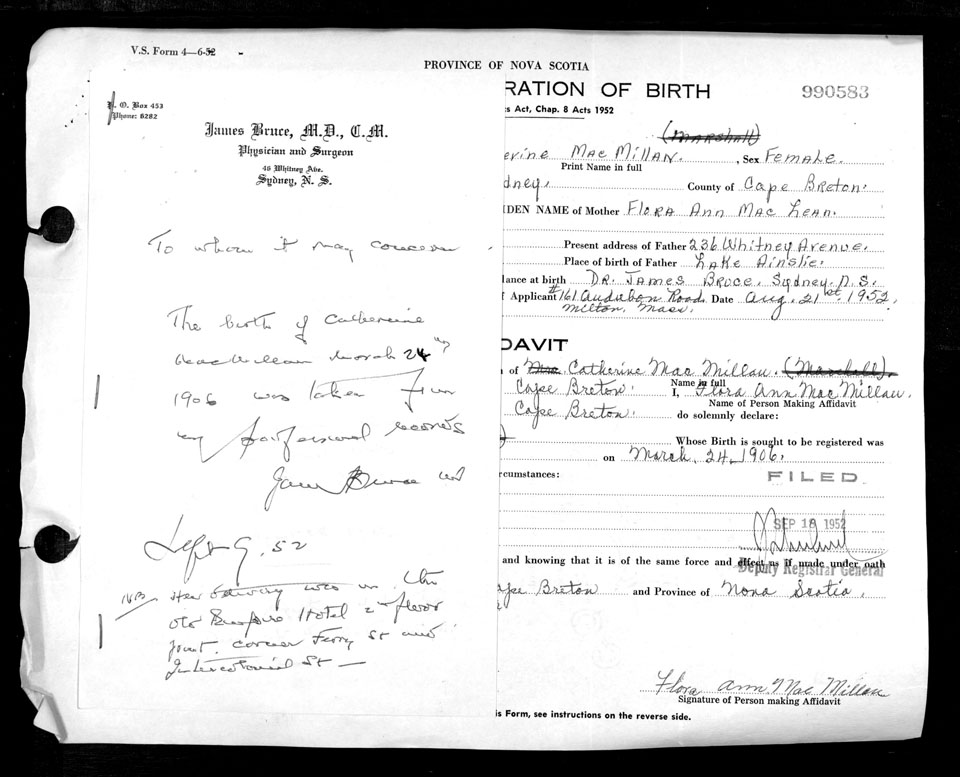 V.S. Form 4—6-52 -
PROVINCE OF NOVA SCOTIA
P. O. Box 453
Phone: 8282
James Bruce, M.D., C.M.
Physician and Surgeon
46 Whitney Ave.
Sydney, N. S.
To whom it may concern.
The birth of Catherine
MacMillan March 24
1906 was taken from
my professional records
James Bruce MD
Sept 9, 52
NB
was in the
old Empire Hotel 2nd floor
front. corner Ferry St and
Intercolonial St —
RATION OF BIRTH
990583
s Act, Chap. 8 Acts 1952
(Marshall)
erine Mac Millan. , Sex Female.
Print Name in full
dney, County of Cape Breton.
IDEN NAME of Mother Flora Ann Mac Lean.
Present address of Father 236 Whitney Avenue.
Place of birth of Father Lake Ainslie.
lance at birth Dr. James Bruce, Sydney. N.S.
f Applicant #161 Audubon Road. Date Aug. 21st, 1952.
Milton, Mass.
DAVIT
of Catherine Mac Millan. (Marshall).
Cape Breton. Name in full
I, Flora Ann Mac Millan.
Name of Person Making Affidavit
Cape Breton. do solemnly declare:
Whose Birth is sought to be registered was
on March, 24, 1906.
rcumstances:
FILED
SEP 18 1952
and knowing that it is of the same force and effect as if made under oath
Deputy Registrar General
ape Breton and Province of Nova Scotia.
Flora Ann Mac Millan
Signature of Person making Affidavit
is Form, see instructions on the reverse side.